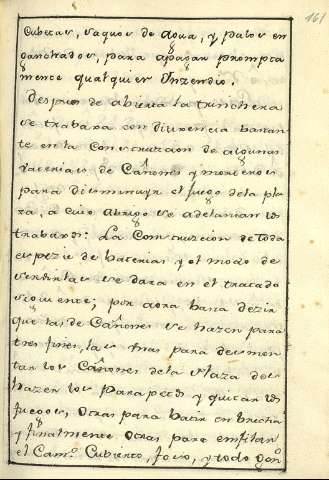 161
Cubetas, saquos de Agua, y palos en
ganchados, para apagar prompta
mente qualquier Inzendio.
Despues de abierta la trinchera
se trabaxa con diligencia bastan
te en la Construczion de algunas
vaterias de Cañones y morteros
para disminuyr el fuego dela pla
za, a cuio abrigo se adelantan los
trabaxos: La Construczion de toda
espezie de baterias y el modo de
servirlas se dara en el tractado
siguiente; por aora basta dezir
que las de Cañones se hazen para
tres fines, las unas para desmon
tar los Cañones de la Plaza des
hazer los Parapetos y quitar los
fuegos, otras para batir en brecha
y finalmente otras para enfilar
el Camº Cubierto, foso, y todo